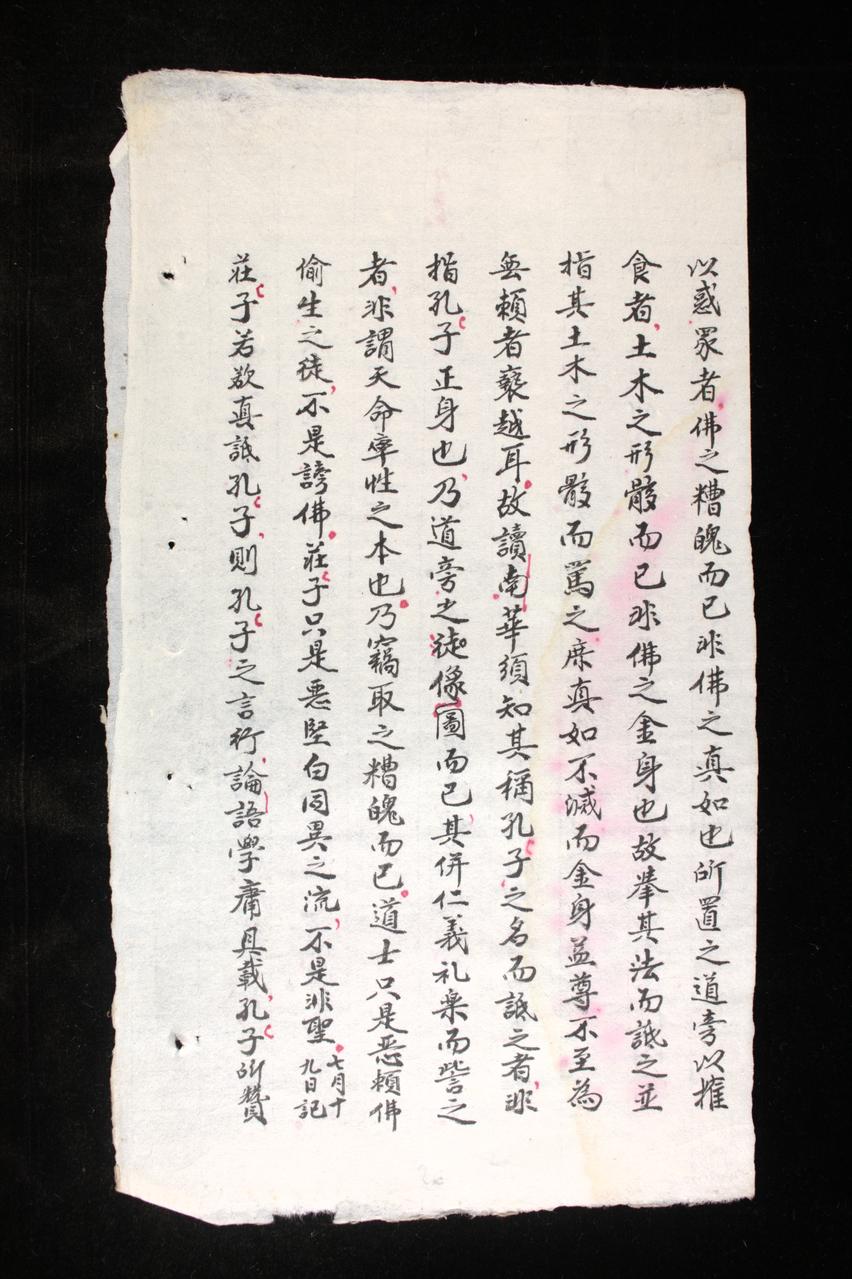 以惑眾者佛之糟魄而已非佛之真如也所置之道旁以摧
食者土木之形骸而已非佛之金身也故拳其法而詆之並
指其土木之形骸而罵之庶真如不滅而金身益尊不至為
無賴者褻越耳故讀南華須知其稱孔子之名而詆之者非
指孔子正身也乃道旁之徒像圖而已其併仁義礼楽而訾之
者非謂天命率性之本也乃竊取之糟魄而已道士只是惡賴佛
偷生之徒不是謗佛莊子只是惡堅白同異之流不是非聖七月十九日記
莊子若欲真詆孔子則孔子之言行論語學庸具載孔子所贊